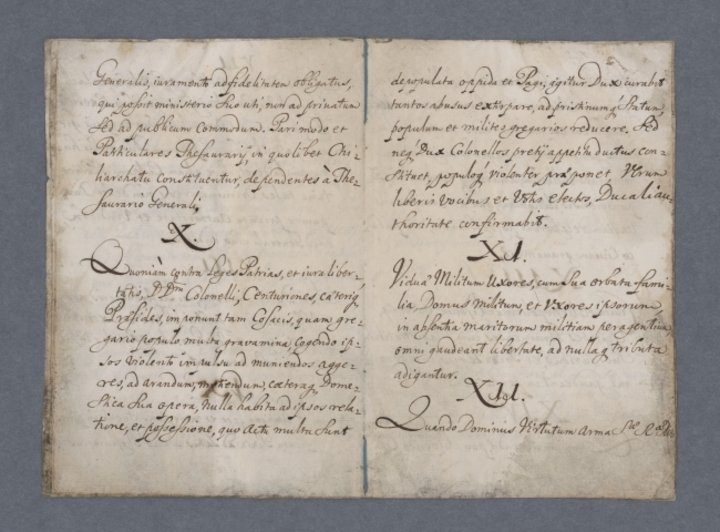 Generalis, iuramento ad fidelitatem obligatus,
qui possit ministerio suo uti, non ad priuatum
sed ad publicum commodum. Pari modo et
Particulares Thesaurarij, in quolibet Chi-
liarchatu constituentur, dependentes à The-
saurario Generali,
X.
Quoniàm contra Leges Patrias, et iura liber-
tatis, Colonelli, Centuriones, cæteriq́
Præsides, imponunt tam Cosacis, quam gre-
gario populo multa grauamina, cogendo ip-
sos violento impulsu ad muniendos agge-
res, ad arandum, metendum, cæteraq́ Dome-
stica sua opera, nulla habita ad ipsos rela-
tione, et possessione, quo actu multa sunt
depopulata oppida et Pagi, igitur Dux curabit
tantos abusus extirpare, ad pristinumq́ statum,
populum et milites gregarios reducere. Sed
neq́ Dux Colonellos pretij appetitu ductus con-
stituet, populoq́ violenter præponet, Verum
liberis vocibus et Votis electos, Ducali au-
thoritate confirmabit.
XI.
Viduæ Militum Uxores, cum sua orbata fami-
lia, Domus Militum, et Vxores ipsorum
in absentia maritorum militiam peragentium
omni gaudeant libertate, ad nullaq́ tributa
adigantur.
XII.
Quando Dominus Virtutum Arma